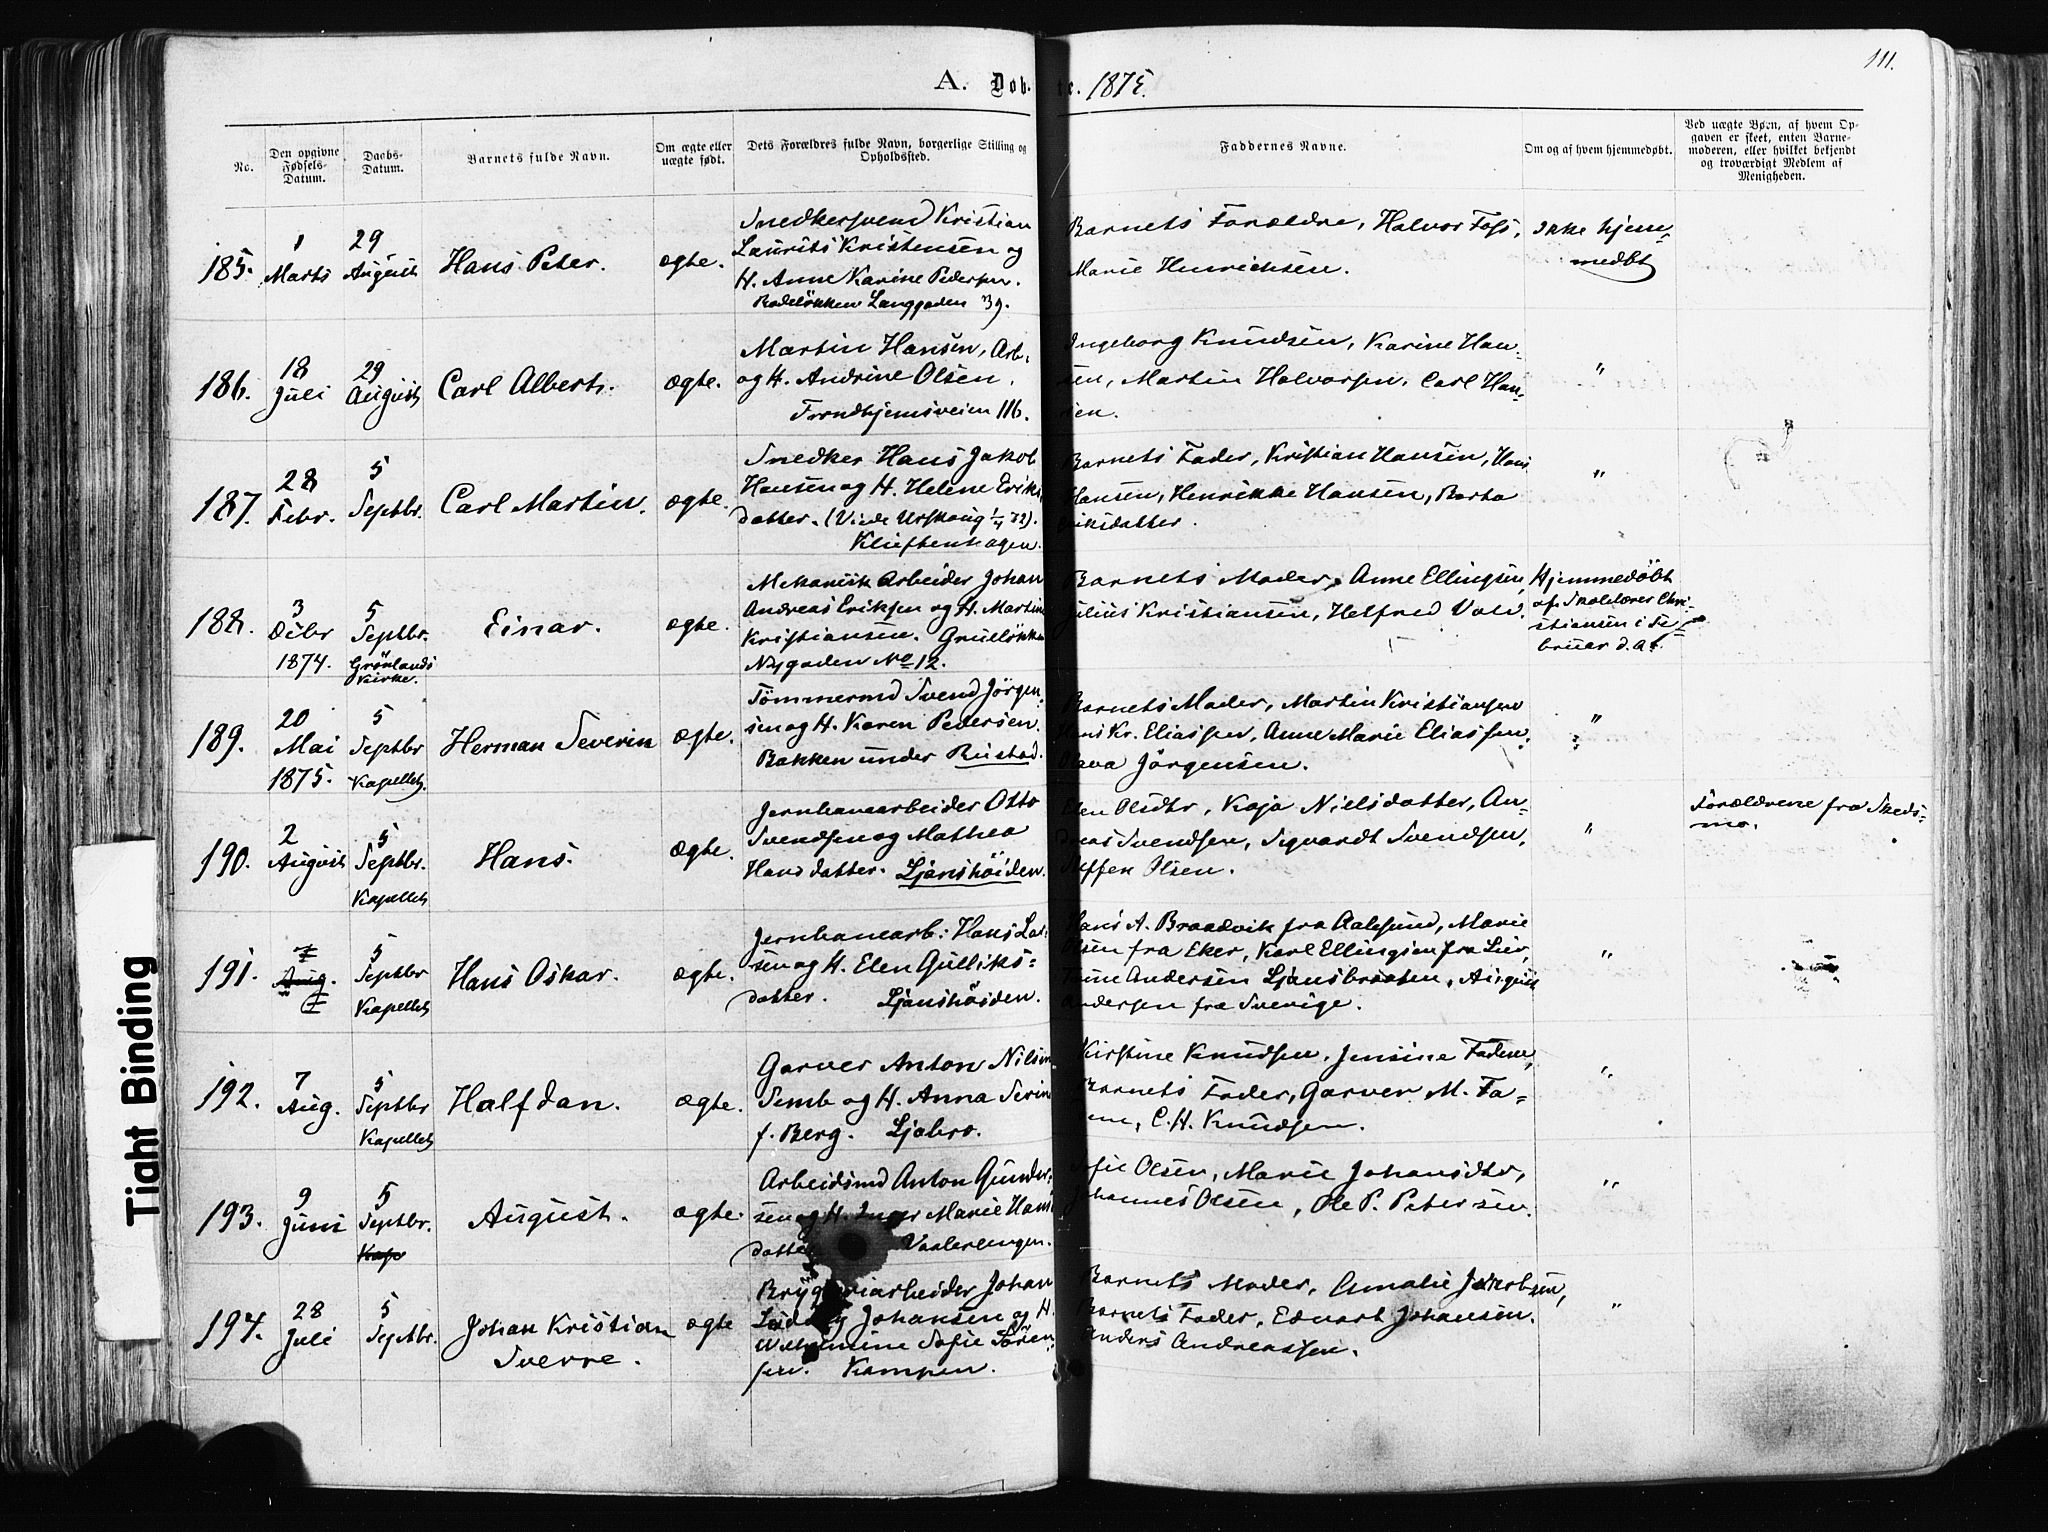 111.
A. Døb te. 1875.
No.
Den opgivne Fødsels-Datum.
Daabs-Datum.
Barnets fulde Navn.
Om ægte eller uægte født.
Dets Forældres fulde Navn, borgerlige Stilling og Opholdssted.
Faddernes Navne.
Om og af hvem hjemmedøbt.
Ved uægte Børn, af hvem Op-
gaven er skeet, enten Barne-
moderen, eller hvilket bekjendt
og troværdigt Medlem af
Menigheden.
185.
1
Marts
29
August
Hans Peter.
ægte.
Snedkersvend Kristian
Laurits Kristensen og
H. Anne Karine Pedersen.
Rodeløkken Langgaden 39.
Barnets Forældre, Halvor Foss,
Marie Henrichsen.
Ikke hjem-
medbt
186.
18
Juli
29
August
Carl Albert.
ægte.
Martin Hansen, Arb.
og H. Andrine Olsen.
Trondhjemsveien 116.
Ingeborg Knudsen, Karine Han-
sen, Martin Halvorsen, Carl Han-
sen.
"
187.
28
Febr.
5
Septbr.
Carl Martin.
ægte.
Snedker Hans Jakob
Hansen og H. Helene Eriks-
datter. (Viede Urskoug 1/4 72).
Kliestenhagen.
Barnets Fader, Kristian Hansen, Hans
Hansen, Henrikke Hansen, Berta
Eriksdatter.
"
188.
3
Debr
1874.
5
Septbr.
Grönlands
Kirke.
Einar.
ægte.
Mekanisk Arbeider Johan
Andreas Eriksen og H. Martine
Kristiansen. Grüløkken
Nygaden No 12.
Barnets Moder, Anne Ellingsen,
Julius Kristiansen, Helfred Vold.
Hjemmedöbt
af Skolelærer Chri-
stiansen i Fe-
bruar d. A.
189.
20
Mai
1875.
5
Septbr
Kapellet.
Herman Severin
ægte.
Tömmermd Svend Jörgen-
sen og H. Karen Pedersen.
Bakken under Rustad.
Barnets Moder, Martin Kristiansen
Hans Kr. Eliassen, Anne Marie Eliassen,
Olava Jörgensen.
"
190.
2
August
5
Septbr.
Kapellet
Hans.
ægte.
Jernbanearbeider Otto
Svendsen og Mathea
Hansdatter. Ljanshöiden.
Elen Olsdtr, Kaja Nielsdatter, An-
dreas Svendsen, Sigvardt Svendsen,
Steffen Olsen.
"
Forældrene fra Skeds-
mo.
191.
7
Aug.
5
Septbr
Kapellet
Hans Oskar.
ægte.
Jernbanearb: Hans Lar-
sen og H. Elen Gulliks-
datter. Ljanshöiden.
Hans A. Braadvik fra Aalesund, Marie
Olsen fra Eker, Karl Ellingsen fra Lier,
Anne Andersen Ljansbraaten, August
Andersen fra Sverige.
"
192.
7
Aug.
5
Septbr
Kapellet
Halfdan.
ægte.
Garver Anton Nilsen
Semb og H. Anna Serine
f. Berg. Ljabro.
Kirstine Knudsen, Jensine Fadum,
Barnets Fader, Garver M. Fa-
um, C. H. Knudsen.
"
193.
9
Juni
5
Septbr.
Kape
August.
ægte.
Arbeidsmd Anton Gunder-
sen og H. Inger Marie Hans
datter Vaalerengen.
Sofie Olsen, Marie Johansdtr,
Johannes Olsen, Ole P. Petersen.
"
194.
28
Juli
5
Septbr.
Johan Kristian
Sverre.
ægte
Bryggeriarbeider Johan
Ludvig Johansen og H.
Wilhelmine Sofie Sören-
sen. Kampen.
Barnets Moder, Amalie Jakobsen,
Barnets Fader, Edvart Johansen.
Anders Andreassen.
"
Tight Binding